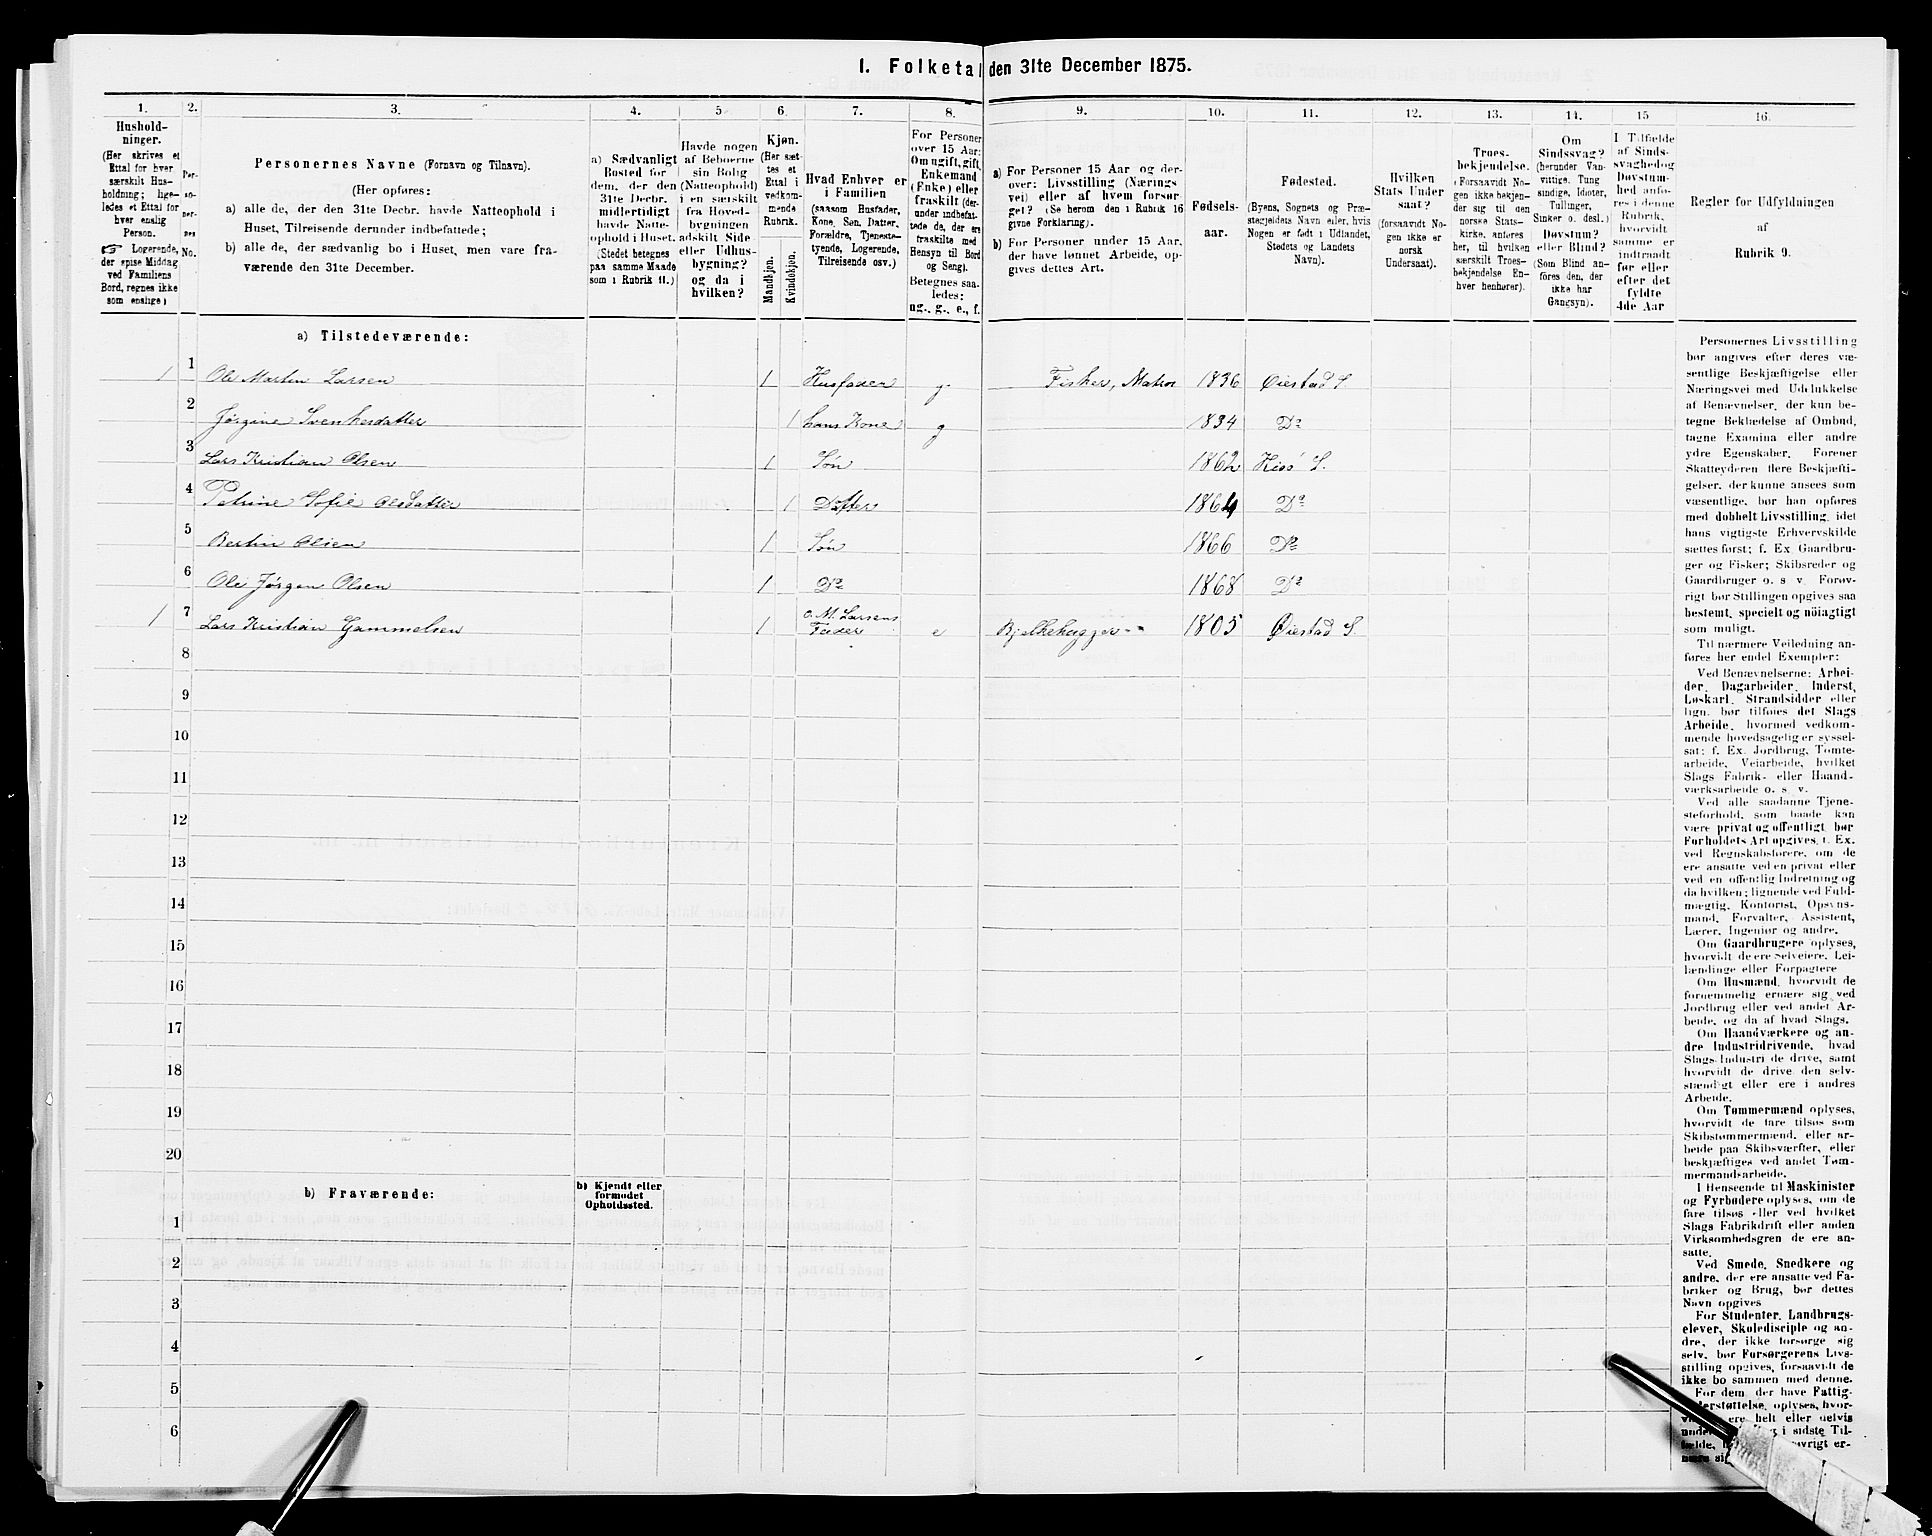 1. Folketal den 31te December 1875.
1.
Hushold-
ninger.
(Her skrives et
Ettal for hver
særskilt Hus-
holdning; lige-
ledes et Ettal for
hver enslig
Person.
☞ Logerende,
der spise Middag
ved Familiens
Bord, regnes ikke
som enslige)
2.
Per-
so-
ner-
nes
No.
3.
Personernes Navne (Fornavn og Tilnavn).
(Her opføres:
a) alle de, der den 31te Decbr. havde Natteophold i
Huset, Tilreisende derunder indbefattede;
b) alle de, der sædvanlig bo i Huset, men vare fra-
værende den 31te December.
4.
a) Sædvanligt
Bosted for
dem, der den
31te Decbr.
midlertidigt
havde Natte-
ophold i Huset.
(Stedet betegnes
paa samme Maade
som i Rubrik 11.)
5
Havde nogen
af Beboerne
sin Bolig
(Natteophold)
i en særskilt
fra Hoved-
bygningen
adskilt Side-
eller Udhus-
bygning?
og da i
hvilken?
6.
Kjøn.
(Her sæt-
tes et
Ettal i
vedkom-
mende
Rubrik.
Mandkjøn.
Kvindekjøn.
7.
Hvad Enhver er
i Familien
(saasom Husfader,
Kone, Søn, Datter,
Forældre, Tjeneste-
tyende, Logerende,
Tilreisende osv.)
8.
For Personer
over 15 Aar:
Om ugift, gift,
Enkemand
(Enke) eller
fraskilt (der-
under indbefat-
tede de, der ere
fraskilte med
Hensyn til Bord
og Seng).
Betegnes saa-
ledes:
ug., g., e., f.
9.
a) For Personer 15 Aar og der-
over: Livsstilling (Nærings-
vei) eller af hvem forsør-
get? (Se herom den i Rubrik 16
givne Forklaring).
b) For Personer under 15 Aar,
der have lønnet Arbeide, op-
gives dettes Art.
10.
Fødsels-
aar.
11.
Fødested.
(Byens, Sognets og Præ-
stegjeldets Navn eller, hvis
Nogen er født i Udlandet,
Stedets og Landets
Navn).
12.
Hvilken
Stats Under
saat?
(forsaavidt No-
gen ikke er
norsk
Undersaat).
13.
Troes-
bekjendelse.
(Forsaavidt No-
gen ikke bekjen-
der sig til den
norske Stats-
kirke, anføres
her, til hvilken
særskilt Troes-
bekjendelse En-
hver henhører).
14.
Om
Sindssvag?
(herunder Van-
vittige, Tung
sindige, Idioter,
Tullinger,
Sinker o. desl.)
Døvstum?
eller Blind?
(Som Blind an-
føres den, der
ikke har
Gangsyn).
15
I Tilfælde
af Sinds-
svaghed og
Døvstum-
hed anfø-
res i denne
Rubrik,
hvorvidt
samme er
indtraadt
før eller
efter det
fyldte
4de Aar
16.
Regler for Udfyldningen
af
Rubrik 9.
a) Tilstedeværende:
1 1 Ole Martin Larsen 1 Husfader g. Fisker, Matros 1836 Øiestad S.
2 Jørgine Svenkesdatter 1 hans Kone g 1834 Do
3 Lars Kristian Olsen 1 Søn 1862 Hisö S.
4 Petrine Sofie Olsdatter 1 Datter 1864 Do
5 Bertin Olsen 1 Søn 1866 Do
6 Ole Jørgen Olsen 1 Do 1868 Do
1 7 Lars Kristian Gammelsen 1 O. M. Larsens
Fader e Bjelkehugger 1805 Øiestad S.
8
9
10
11
12
13
14
15
16
17
18
19
20
b) Fraværende:
b) Kjendt eller
formodet
Opholdssted.
1
2
3
4
5
6
Personernes Livsstilling
bør angives efter deres væ-
sentlige Beskjæftigelse eller
Næringsvei med Udelukkelse
af Benævnelser, der kun be-
tegne Beklædelse af Ombud,
tagne Examina eller andre
ydre Egenskaber. Forener
Skatteyderen flere Beskjæfti-
gelser, der kunne ansees som
væsentlige, bør han opføres
med dobbelt Livsstilling, idet
hans vigtigste Erhvervskilde
sættes først; f. Ex. Gaardbru-
ger og Fisker; Skibsreder og
Gaardbruger o. s. v. Forøv-
rigt bør Stillingen opgives saa
bestemt, specielt og nøiagtigt
som muligt.
Til nærmere Veiledning an-
føres her endel Exempler:
Ved Benævnelserne: Arbei-
der, Dagarbeider, Inderst,
Løskarl, Strandsidder eller
lign. bør tilføies det Slags
Arbeide, hvormed vedkom-
mende hovedsagelig er syssel-
sat; f. Ex. Jordbrug, Tomte-
arbeide, Veiarbeide, hvilket
Slags Fabrik- eller Haand-
værksarbeide o. s. v.
Ved alle saadanne Tjene-
steforhold, som baade kan
være privat og offentligt, bør
Forholdets Art opgives, f. Ex.
ved Regnskabsførere, om de
ere ansatte ved en privat eller
ved en offentlig Indretning og
da hvilken; lignende ved Fuld-
mægtig, Kontorist, Opsyns-
mand, Forvalter, Assistent,
Lærer, Ingeniør og andre.
Om Gaardbrugere oplyses,
hvorvidt de ere Selveiere, Lei-
lændinge eller Forpagtere
Om Husmænd, hvorvidt de
fornemmelig ernære sig ved
Jordbrug eller ved andet Ar-
beide, og da af hvad Slags.
Om Haandværkere og an-
dre Industridrivende, hvad
Slags Industri de drive, samt
hvorvidt de drive den selv-
stændigt eller ere i andres
Arbeide.
Om Tømmermænd oplyses,
hvorvidt de fare tilsøs som
Skibstømmermænd, eller ar-
beide paa Skibsværfter, eller
beskjæftiges ved andet Tøm-
mermandsarbeide.
I Henseende til Maskinister
og Fyrbødere oplyses, om de
fare tilsøs eller ved hvilket
Slags Fabrikdrift eller anden
Virksomhedsgren de ere an-
satte.
Ved Smede, Snedkere og
andre, der ere ansatte ved Fa-
briker og Brug, bør dettes
Navn opgives
For Studenter, Landbrugs-
elever, Skoledisciple og an-
dre, der ikke forsørge sig
selv, bør Forsørgerens Livs-
stilling opgives, forsaavidt de
ikke bo sammen med denne.
For dem, der have Fattig-
understøttelse, oplyses, hvor-
ere helt eller delvis
i sidste Til-